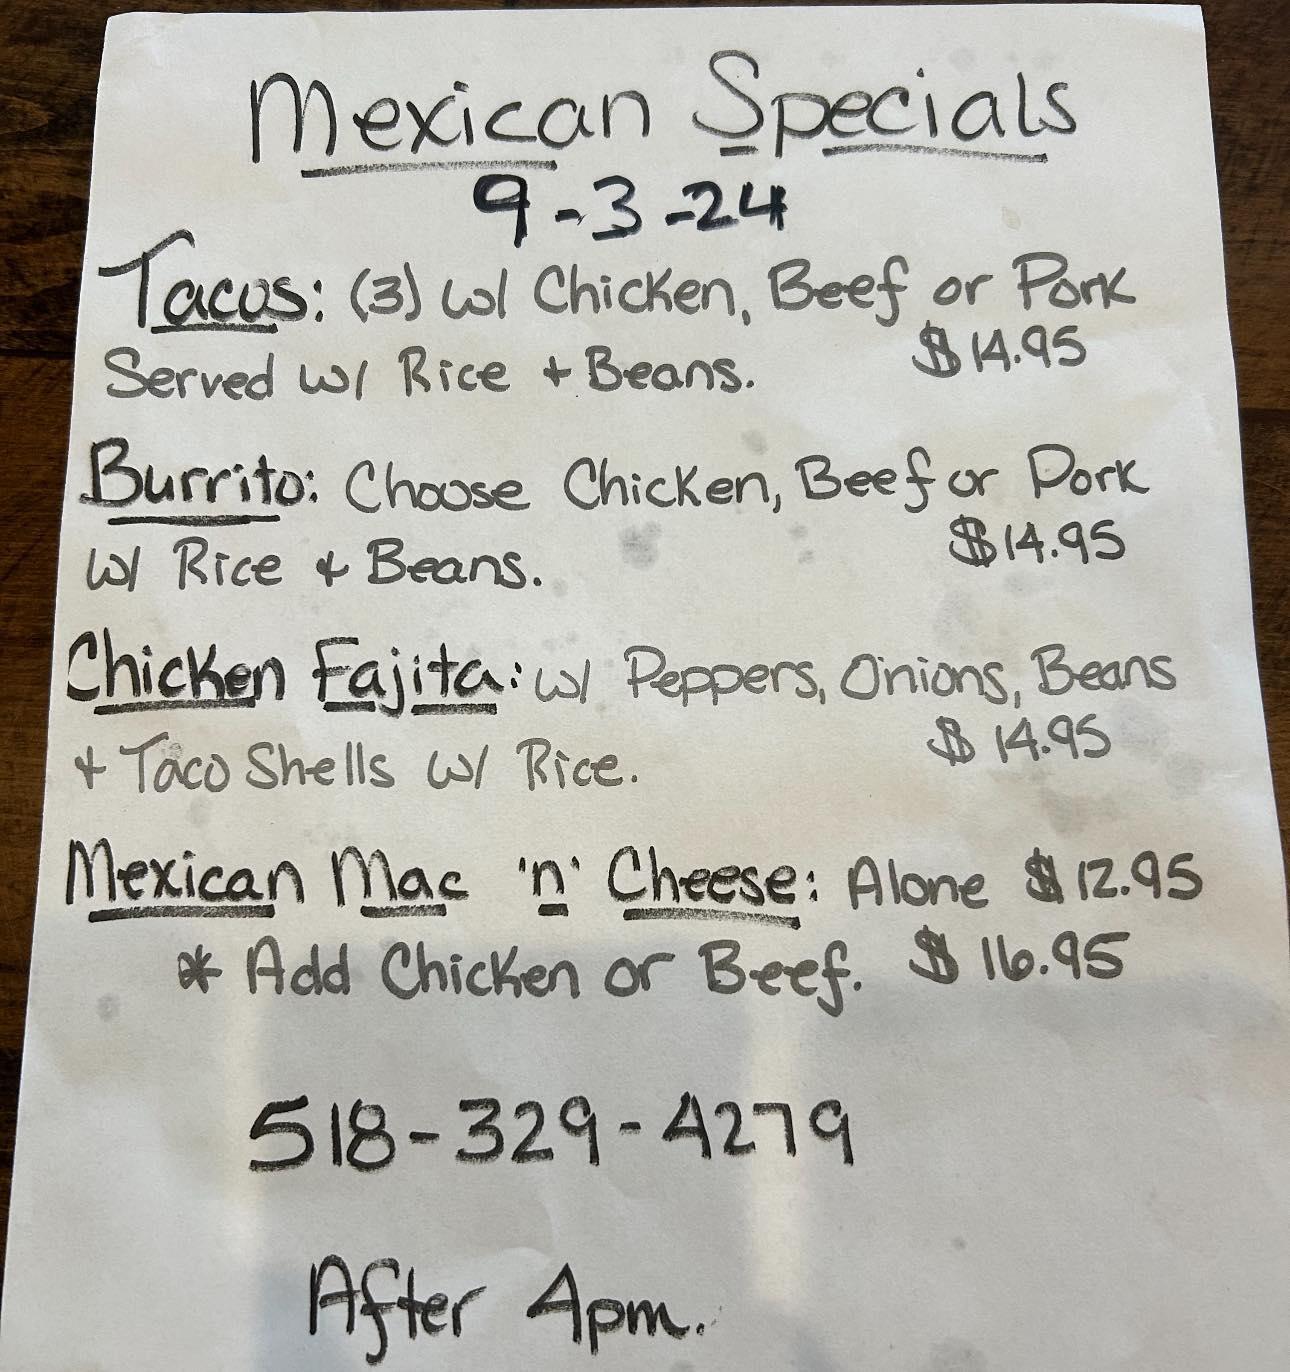 Mexican Specials
9-3-24
Tacos: (3) w/ Chicken, Beef or Pork
Served w/ Rice + Beans. $14.95
Burrito: Choose Chicken, Beef or Pork
w/ Rice + Beans. $14.95
Chicken Fajita: w/ Peppers, Onions, Beans
+ Taco Shells w/ Rice. $14.95
Mexican Mac 'n' Cheese: Alone $12.95
* Add Chicken or Beef. $16.95
518-329-4279
After 4pm.